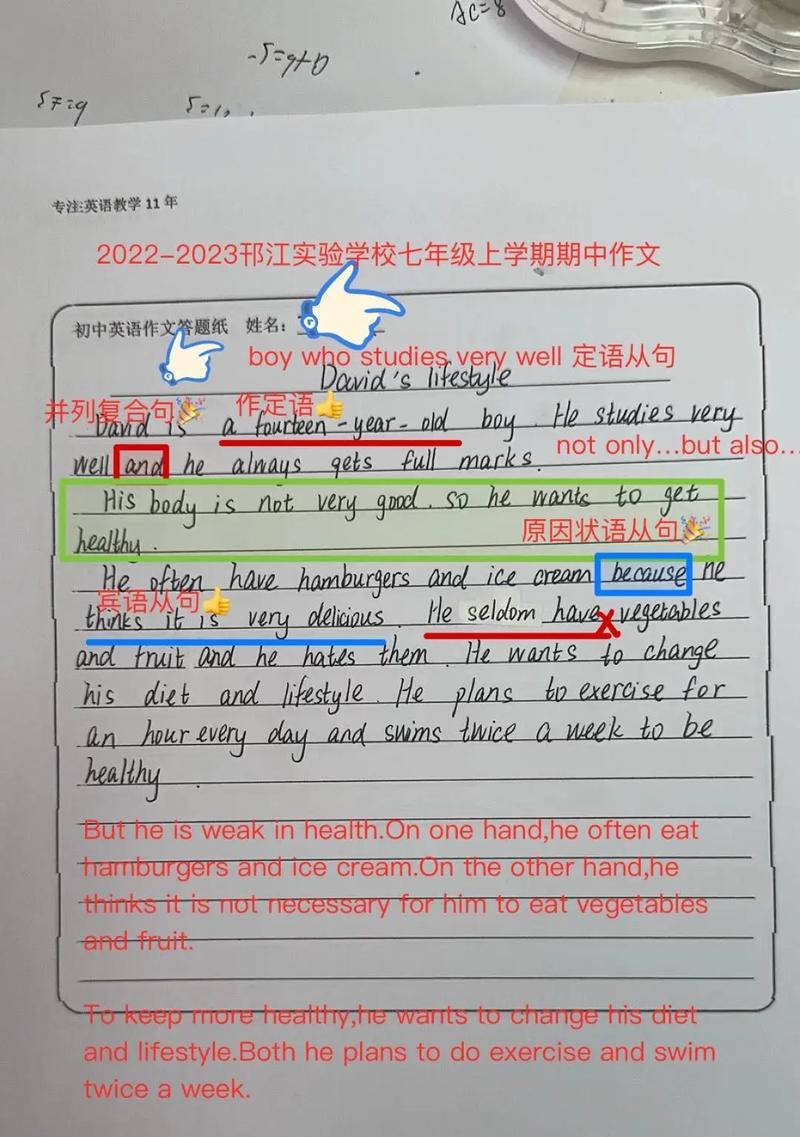 AC=8
专注:英语教学11年
2022-2023邗江实验学校七年级上学期期中作文
初中英语作文答题纸 姓名:
boy who studies very well 定语从句
David's lifestyle
并列复合句 作定语
David is a fourteen-year-old boy. He studies very
not only...but also...
well and he always gets full marks.
His body is not very good. so he wants to get
原因状语从句
healthy.
He often have hamburgers and ice cream because he
宾语从句
thinks it is very delicious. He seldom have vegetables
and fruit and he hates them. He wants to change
his diet and lifestyle. He plans to exercise for
an hour every day and swims twice a week to be
healthy.
But he is weak in health.On one hand,he often eat
hamburgers and ice cream.On the other hand,he
thinks it is not necessary for him to eat vegetables
and fruit.
To keep more healthy,he wants to change his diet
and lifestyle.Both he plans to do exercise and swim
twice a week.